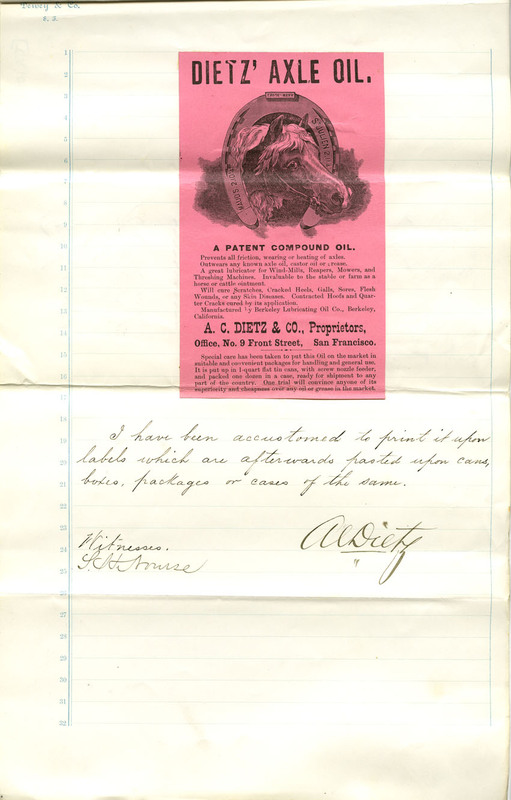 Dewey & Co.
S. F.
1
2
3
4
5
6
7
8
9
10
11
12
13
14
15
16
17
18
19
20
21
22
23
24
25
26
27
28
29
30
31
32
DIETZ' AXLE OIL.
TRADE-MARK
A PATENT COMPOUND OIL.
Prevents all friction, wearing or heating of axles.
Outwears any known axle oil, castor oil or grease.
A great lubricator for Wind-Mills, Reapers, Mowers, and
Threshing Machines. Invaluable to the stable or farm as a
horse or cattle ointment.
Will cure Scratches, Cracked Heels, Galls, Sores, Flesh
Wounds, or any Skin Diseases. Contracted Hoofs and Quar-
ter Cracks cured by its application.
Manufactured by Berkeley Lubricating Oil Co., Berkeley,
California.
A. C. DIETZ & CO., Proprietors,
Office, No. 9 Front Street, San Francisco.
Special care has been taken to put this Oil on the market in
suitable and convenient packages for handling and general use.
It is put up in 1-quart flat tin cans, with screw nozzle feeder,
and packed one dozen in a case, ready for shipment to any
part of the country. One trial will convince anyone of its
superiority and cheapness over any oil or grease in the market.
I have been accustomed to print it upon
labels which are afterwards pasted upon cans,
boxes, packages or cases of the same.
A C Dietz
Witnesses.
S. H. Nourse